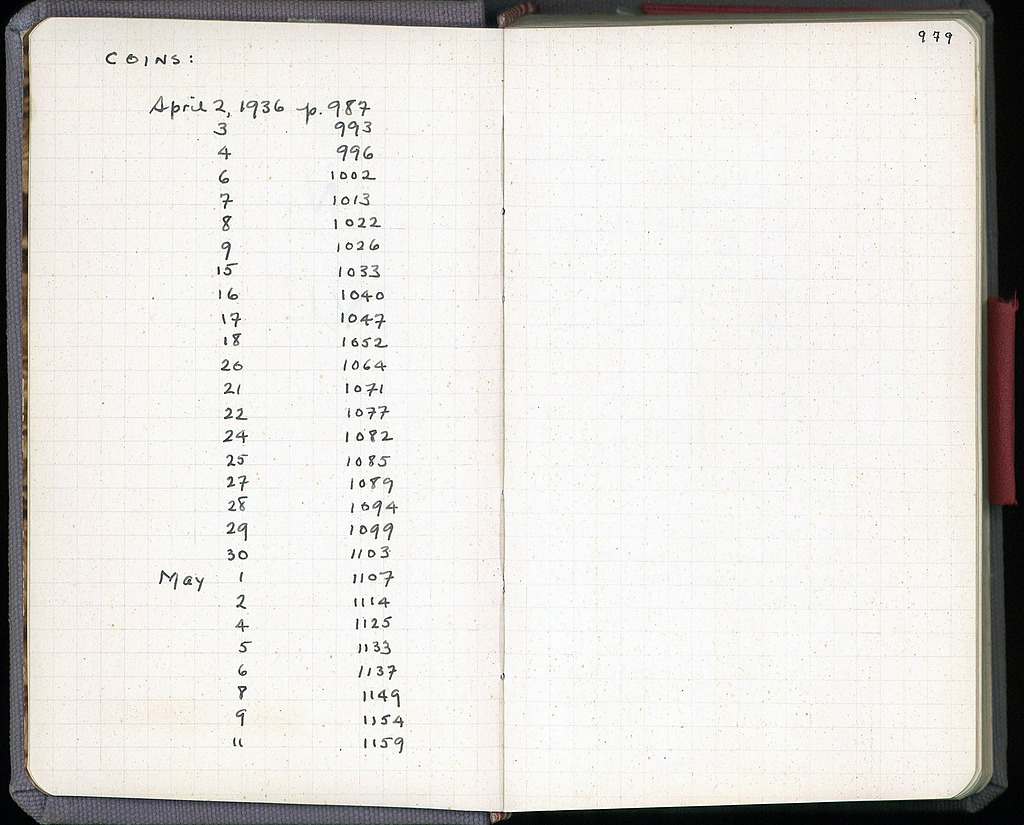 COINS:
April 2, 1936 p. 987
3 993
4 996
6 1002
7 1013
8 1022
9 1026
15 1033
16 1040
17 1047
18 1052
20 1064
21 1071
22 1077
24 1082
25 1085
27 1089
28 1094
29 1099
30 1103
May 1 1107
2 1114
4 1125
5 1133
6 1137
8 1149
9 1154
11 1159
979